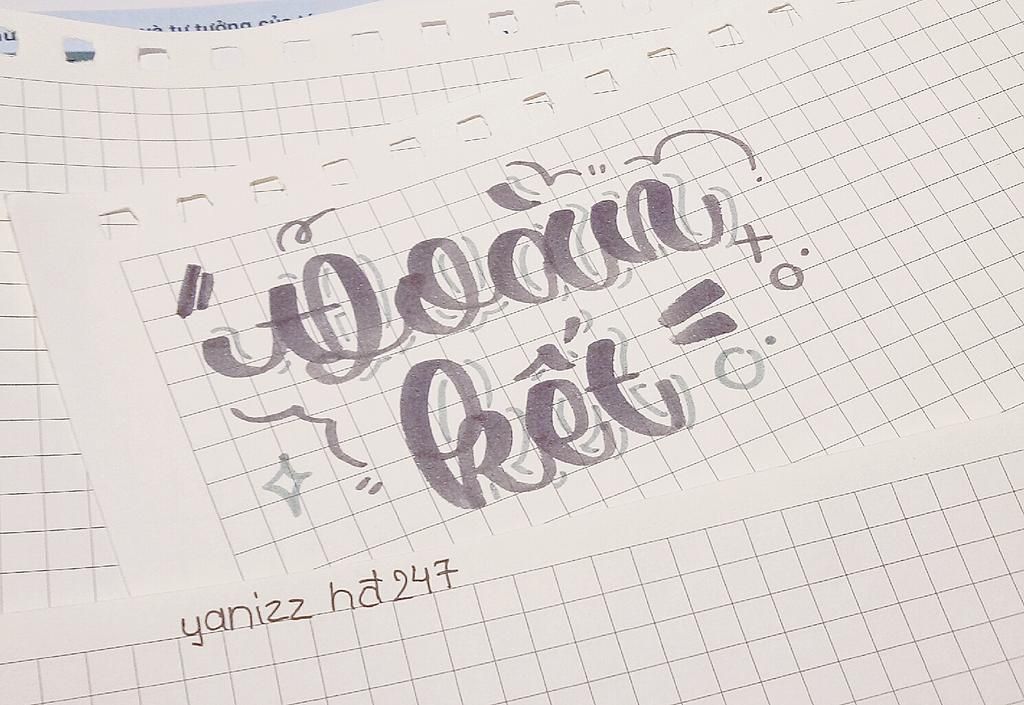 và tư tưởng của
"Đoàn
kết"
yanizz hđ247